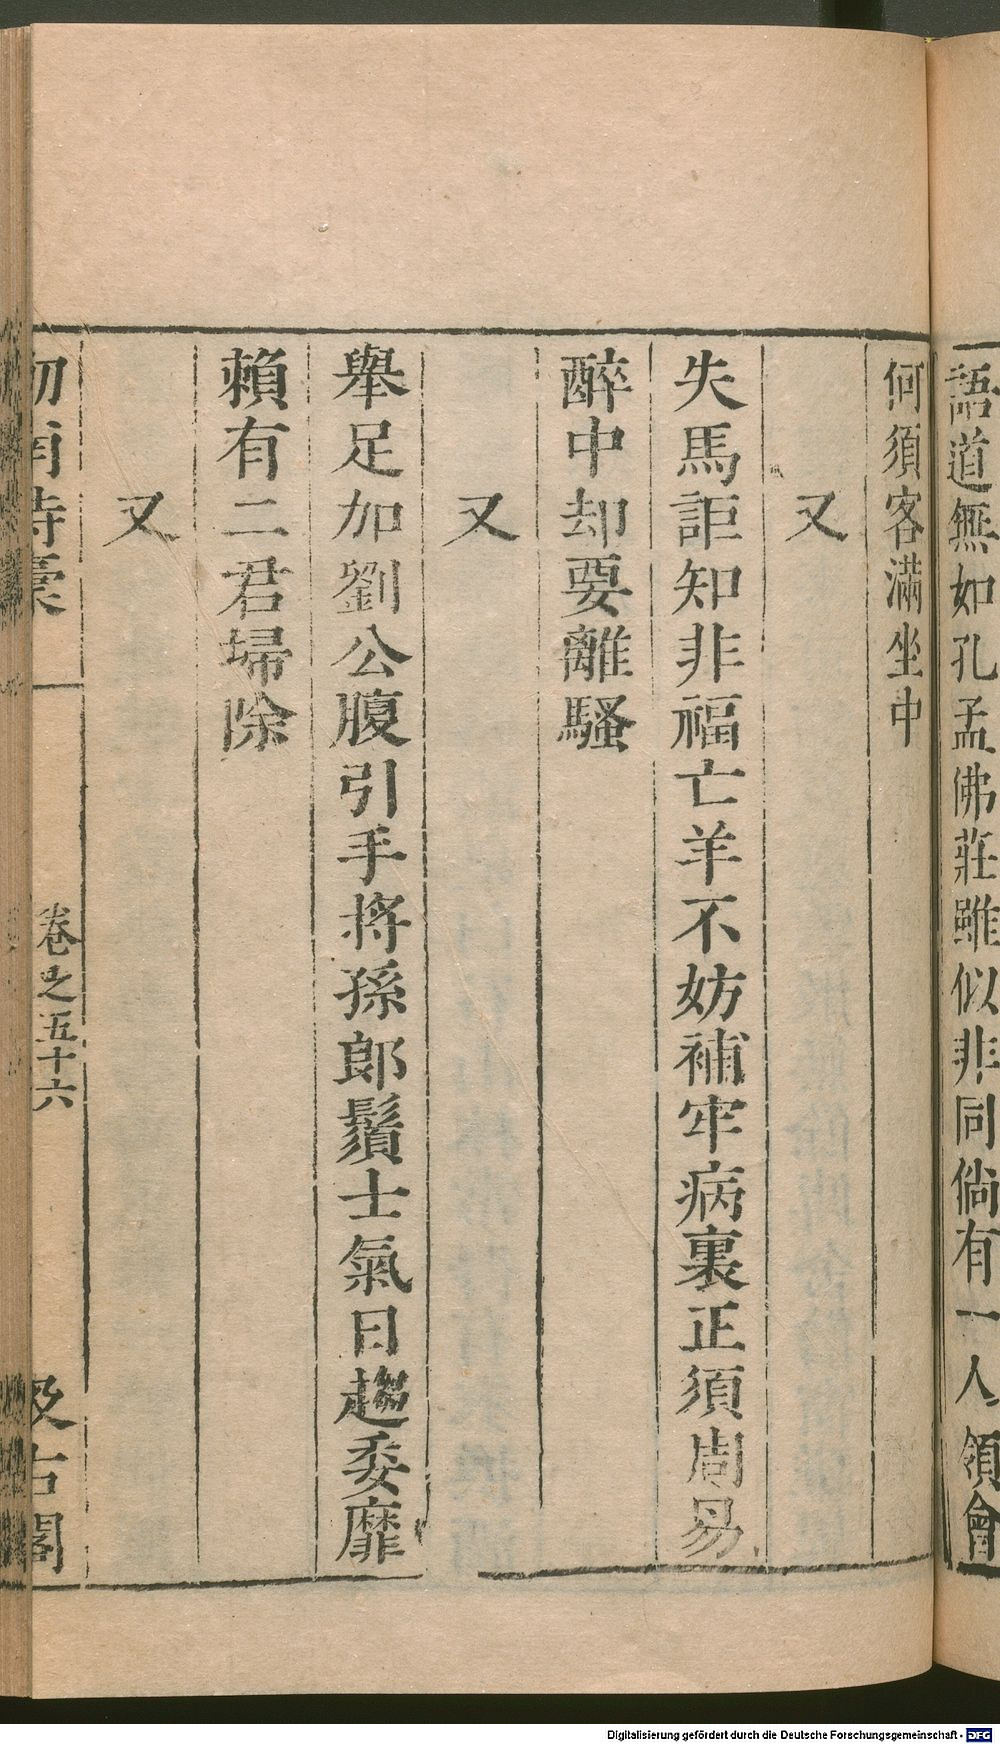 語道無如孔孟佛莊雖似非同倘有一人領會
何須客滿坐中
又
失馬詎知非福亡羊不妨補牢病裏正須周易
醉中却要離騷
又
舉足加劉公腹引手將孫郎鬚士氣日趨委靡
賴有二君埽除
又
劒南詩稾
卷之五十六
汲古閣
Digitalisierung gefördert durch die Deutsche Forschungsgemeinschaft - DFG